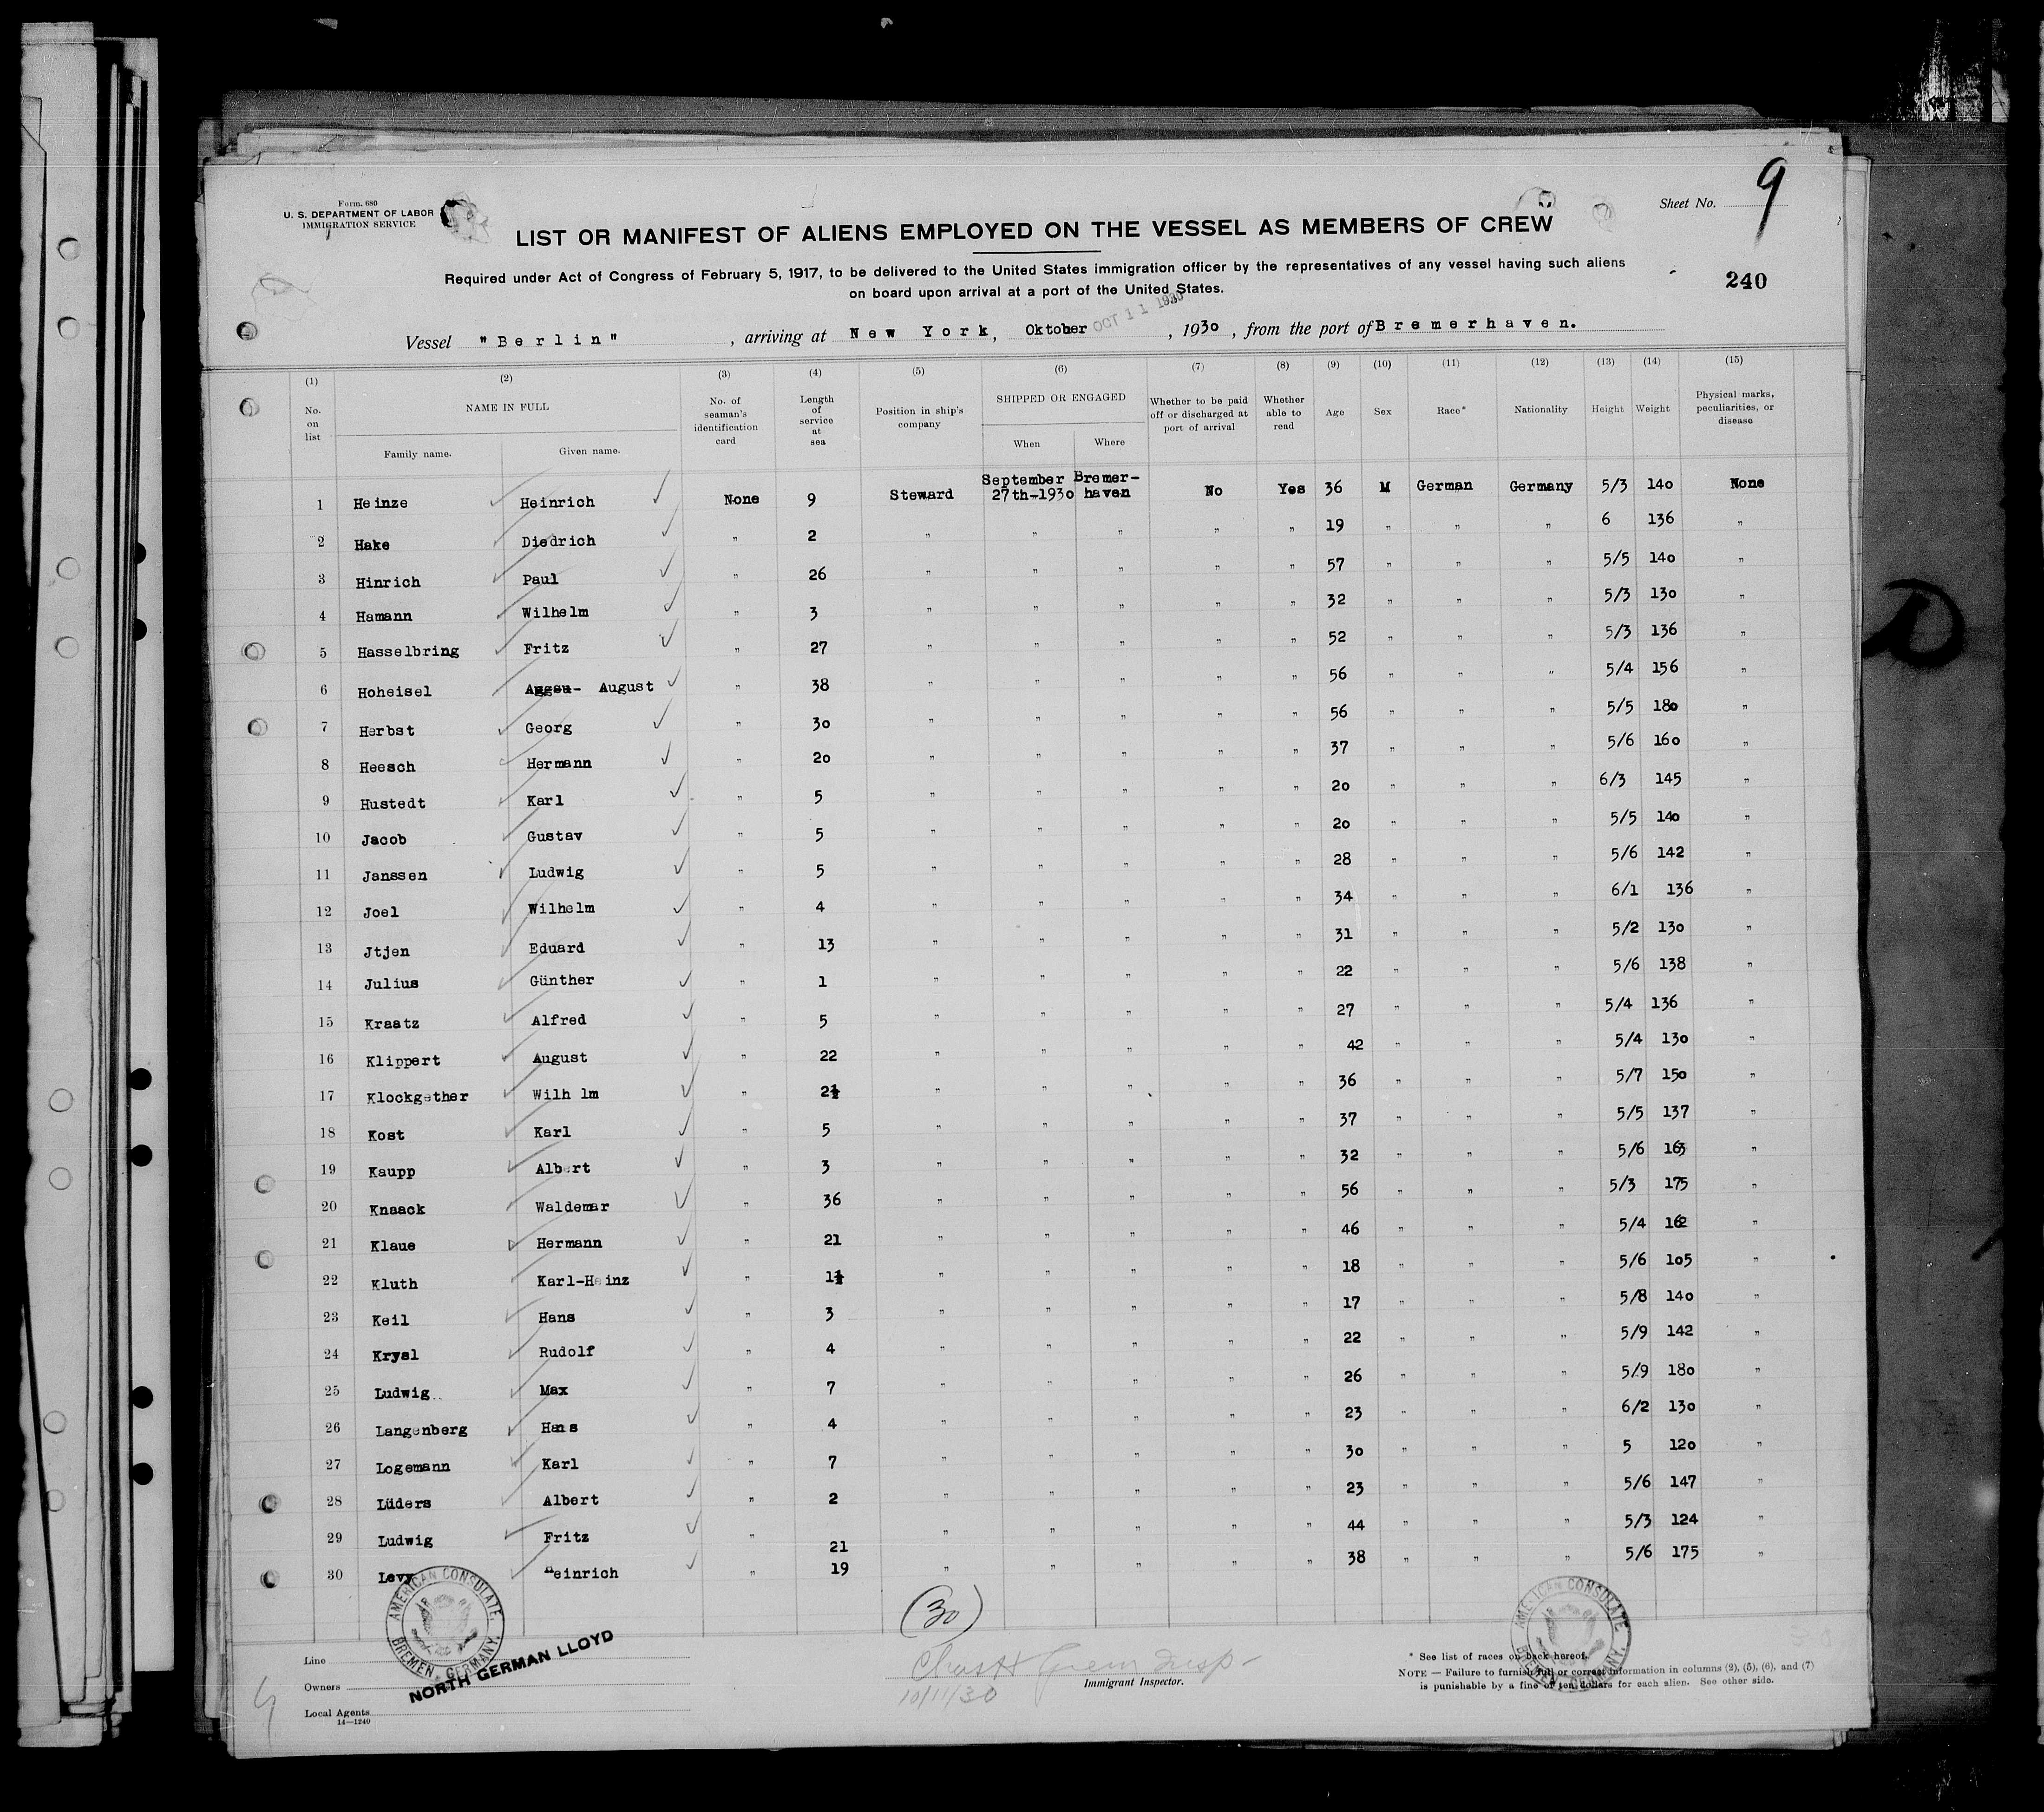 Form. 680
U. S. DEPARTMENT OF LABOR
IMMIGRATION SERVICE
Sheet No. 9
LIST OR MANIFEST OF ALIENS EMPLOYED ON THE VESSEL AS MEMBERS OF CREW
Required under Act of Congress of February 5, 1917, to be delivered to the United States immigration officer by the representatives of any vessel having such aliens
on board upon arrival at a port of the United States.
240
Vessel "Berlin" , arriving at New York, Oktober OCT 11 1930 , 1930 , from the port of Bremerhaven.
(1) (2) (3) (4) (5) (6) (7) (8) (9) (10) (11) (12) (13) (14) (15)
No. on list NAME IN FULL Family name. Given name. No. of seaman's identification card Length of service at sea Position in ship's company SHIPPED OR ENGAGED When Where Whether to be paid off or discharged at port of arrival Whether able to read Age Sex Race* Nationality Height Weight Physical marks, peculiarities, or disease
1 Heinze Heinrich None 9 Steward September 27th-1930 Bremer-haven No Yes 36 M German Germany 5/3 140 None
2 Hake Diedrich " 2 " " " " " 19 " " " 6 136 "
3 Hinrich Paul " 26 " " " " " 57 " " " 5/5 140 "
4 Hamann Wilhelm " 3 " " " " " 32 " " " 5/3 130 "
5 Hasselbring Fritz " 27 " " " " " 52 " " " 5/3 136 "
6 Hoheisel August " 38 " " " " " 56 " " " 5/4 156 "
7 Herbst Georg " 30 " " " " " 56 " " " 5/5 180 "
8 Heesch Hermann " 20 " " " " " 37 " " " 5/6 160 "
9 Hustedt Karl " 5 " " " " " 20 " " " 6/3 145 "
10 Jacob Gustav " 5 " " " " " 20 " " " 5/5 140 "
11 Janssen Ludwig " 5 " " " " " 28 " " " 5/6 142 "
12 Joel Wilhelm " 4 " " " " " 34 " " " 6/1 136 "
13 Jtjen Eduard " 13 " " " " " 31 " " " 5/2 130 "
14 Julius Günther " 1 " " " " " 22 " " " 5/6 138 "
15 Kraatz Alfred " 5 " " " " " 27 " " " 5/4 136 "
16 Klippert August " 22 " " " " " 42 " " " 5/4 130 "
17 Klockgether Wilh lm " 2½ " " " " " 36 " " " 5/7 150 "
18 Kost Karl " 5 " " " " " 37 " " " 5/5 137 "
19 Kaupp Albert " 3 " " " " " 32 " " " 5/6 163 "
20 Knaack Waldemar " 36 " " " " " 56 " " " 5/3 175 "
21 Klaue Hermann " 21 " " " " " 46 " " " 5/4 162 "
22 Kluth Karl-Heinz " 1½ " " " " " 18 " " " 5/6 105 "
23 Keil Hans " 3 " " " " " 17 " " " 5/8 140 "
24 Krysl Rudolf " 4 " " " " " 22 " " " 5/9 142 "
25 Ludwig Max " 7 " " " " " 26 " " " 5/9 180 "
26 Langenberg Hans " 4 " " " " " 23 " " " 6/2 130 "
27 Logemann Karl " 7 " " " " " 30 " " " 5 120 "
28 Lüders Albert " 2 " " " " " 23 " " " 5/6 147 "
29 Ludwig Fritz " 21 " " " " " 44 " " " 5/3 124 "
30 Levy Heinrich " 19 " " " " " 38 " " " 5/6 175 "
(30)
AMERICAN CONSULATE. BREMEN, GERMANY.
AMERICAN CONSULATE. BREMEN, GERMANY.
Line
Owners NORTH GERMAN LLOYD
Local Agents
14—1240
10/11/30
Immigrant Inspector.
* See list of races on back hereof.
NOTE — Failure to furnish full or correct information in columns (2), (5), (6), and (7)
is punishable by a fine of ten dollars for each alien. See other side.